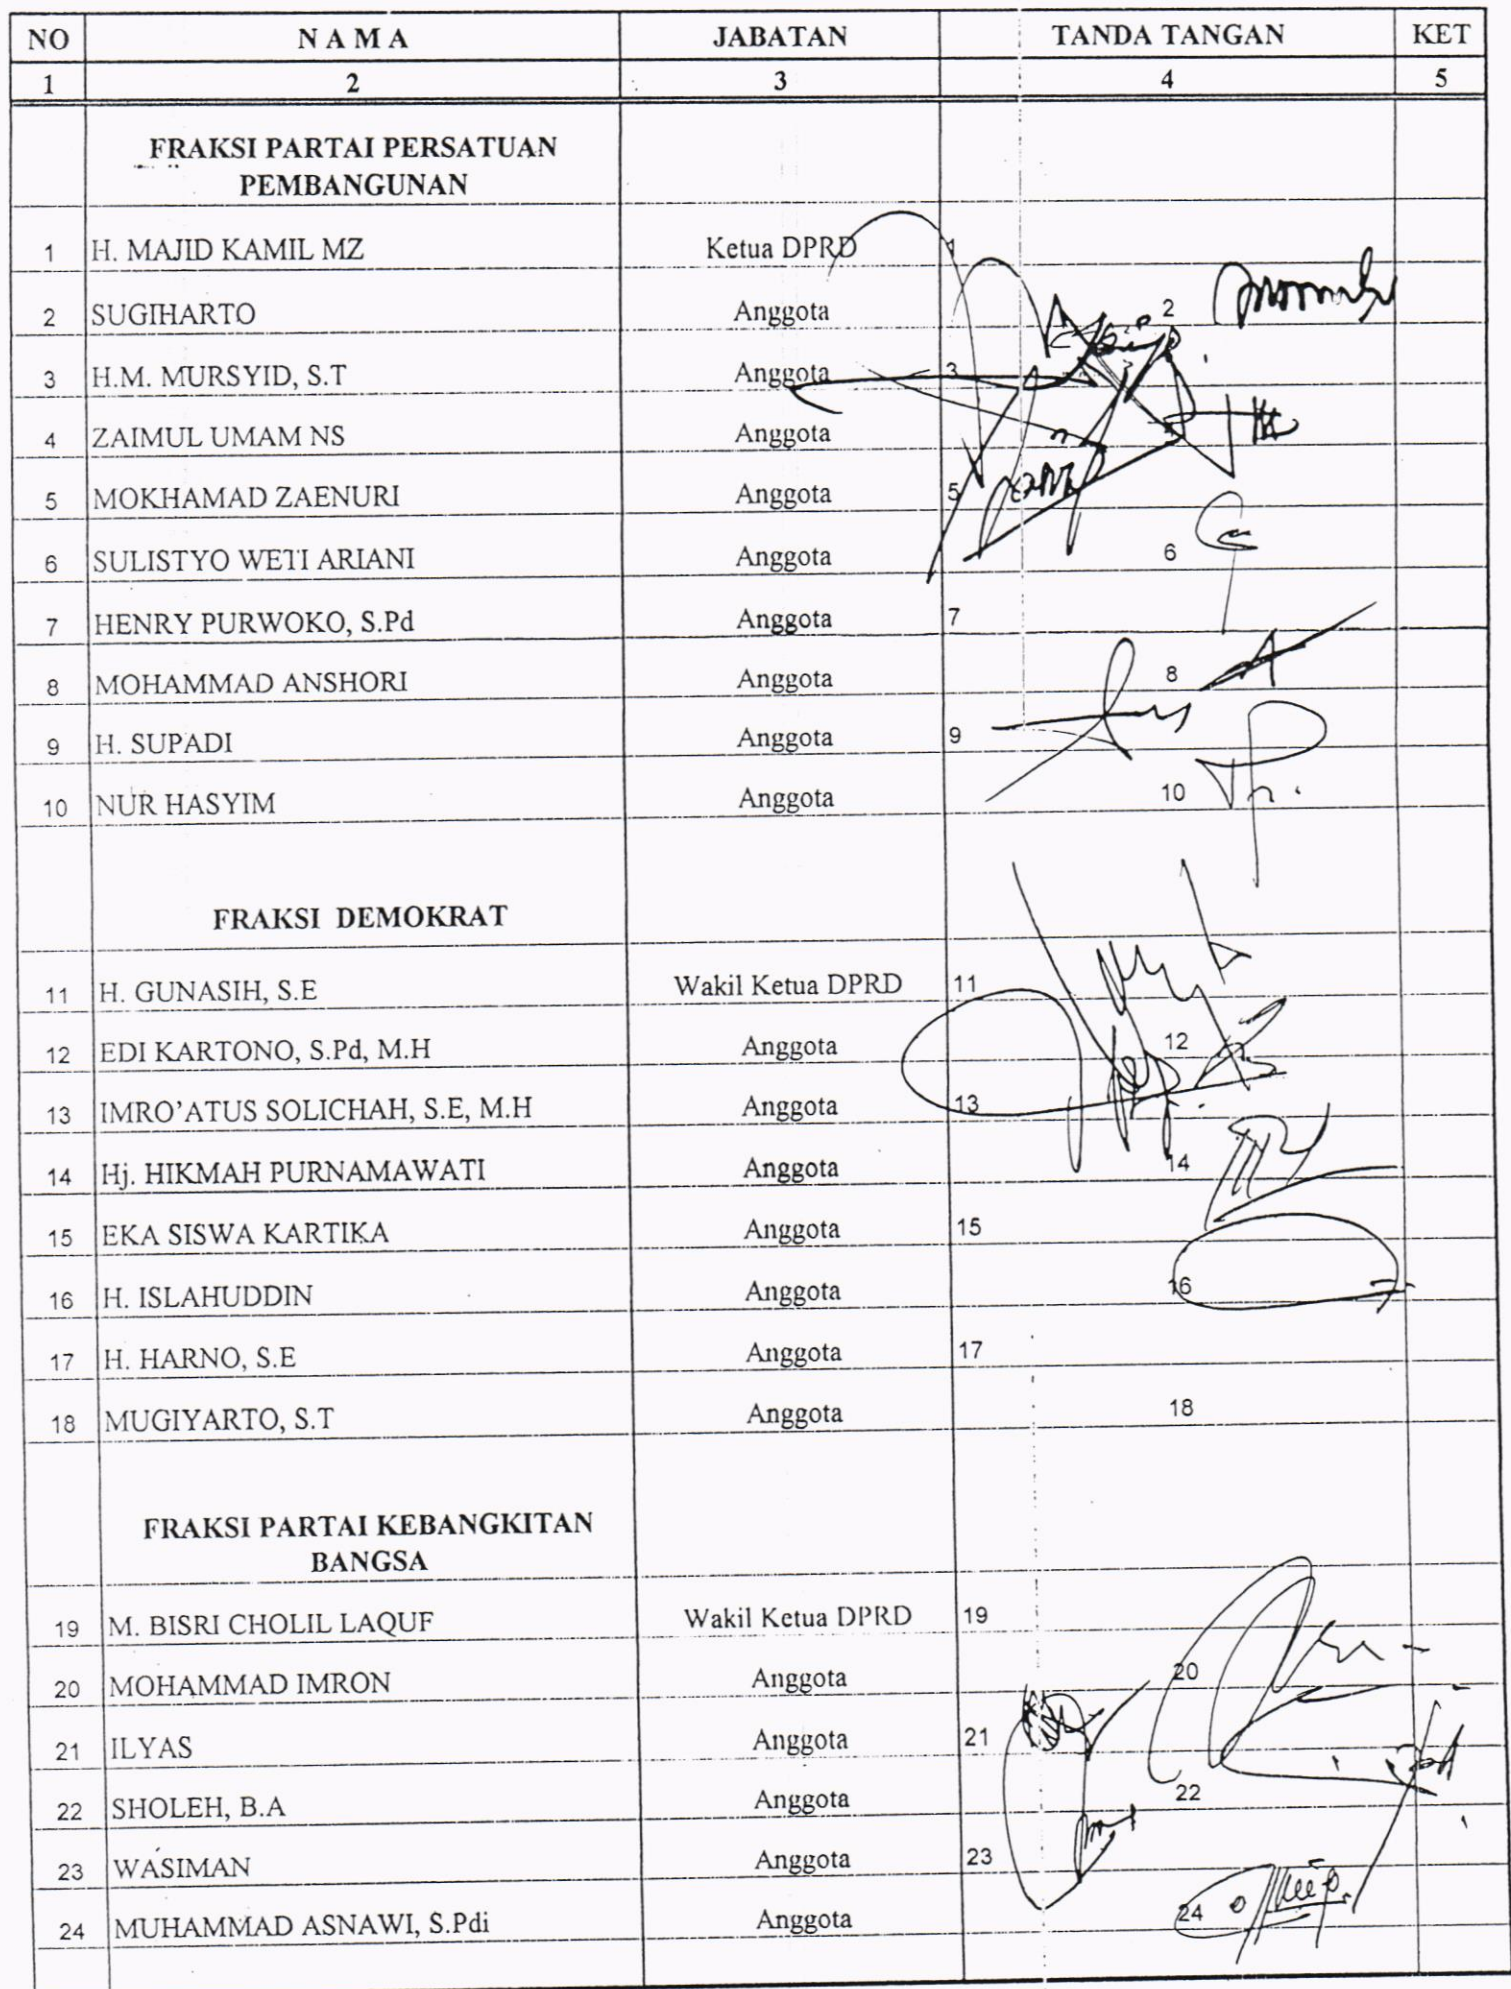 NO N A M A JABATAN TANDA TANGAN KET
1 2 3 4 5
FRAKSI PARTAI PERSATUAN
PEMBANGUNAN
1 H. MAJID KAMIL MZ Ketua DPRD 1
2 SUGIHARTO Anggota 2
3 H.M. MURSYID, S.T Anggota 3
4 ZAIMUL UMAM NS Anggota
5 MOKHAMAD ZAENURI Anggota 5
6 SULISTYO WETI ARIANI Anggota 6
7 HENRY PURWOKO, S.Pd Anggota 7
8 MOHAMMAD ANSHORI Anggota 8
9 H. SUPADI Anggota 9
10 NUR HASYIM Anggota 10
FRAKSI DEMOKRAT
11 H. GUNASIH, S.E Wakil Ketua DPRD 11
12 EDI KARTONO, S.Pd, M.H Anggota 12
13 IMRO’ATUS SOLICHAH, S.E, M.H Anggota 13
14 Hj. HIKMAH PURNAMAWATI Anggota 14
15 EKA SISWA KARTIKA Anggota 15
16 H. ISLAHUDDIN Anggota 16
17 H. HARNO, S.E Anggota 17
18 MUGIYARTO, S.T Anggota 18
FRAKSI PARTAI KEBANGKITAN
BANGSA
19 M. BISRI CHOLIL LAQUF Wakil Ketua DPRD 19
20 MOHAMMAD IMRON Anggota 20
21 ILYAS Anggota 21
22 SHOLEH, B.A Anggota 22
23 WASIMAN Anggota 23
24 MUHAMMAD ASNAWI, S.Pdi Anggota 24